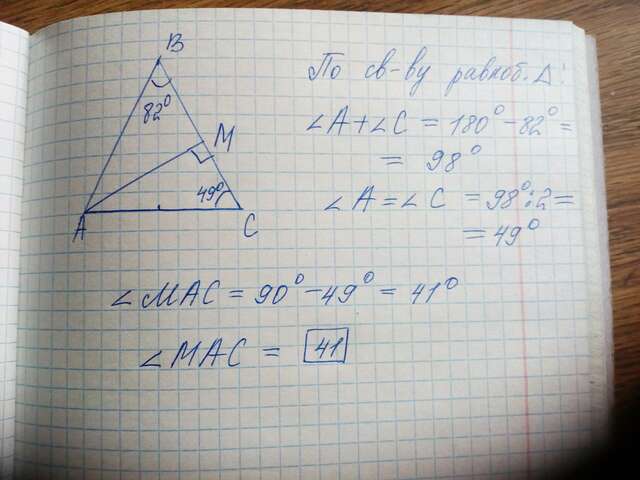 B
82°
M
49°
A
C
По св-ву равноб. Δ:
∠A+∠C = 180°-82° =
= 98°
∠A=∠C = 98°:2 =
= 49°
∠MAC = 90°-49° = 41°
∠MAC = 41